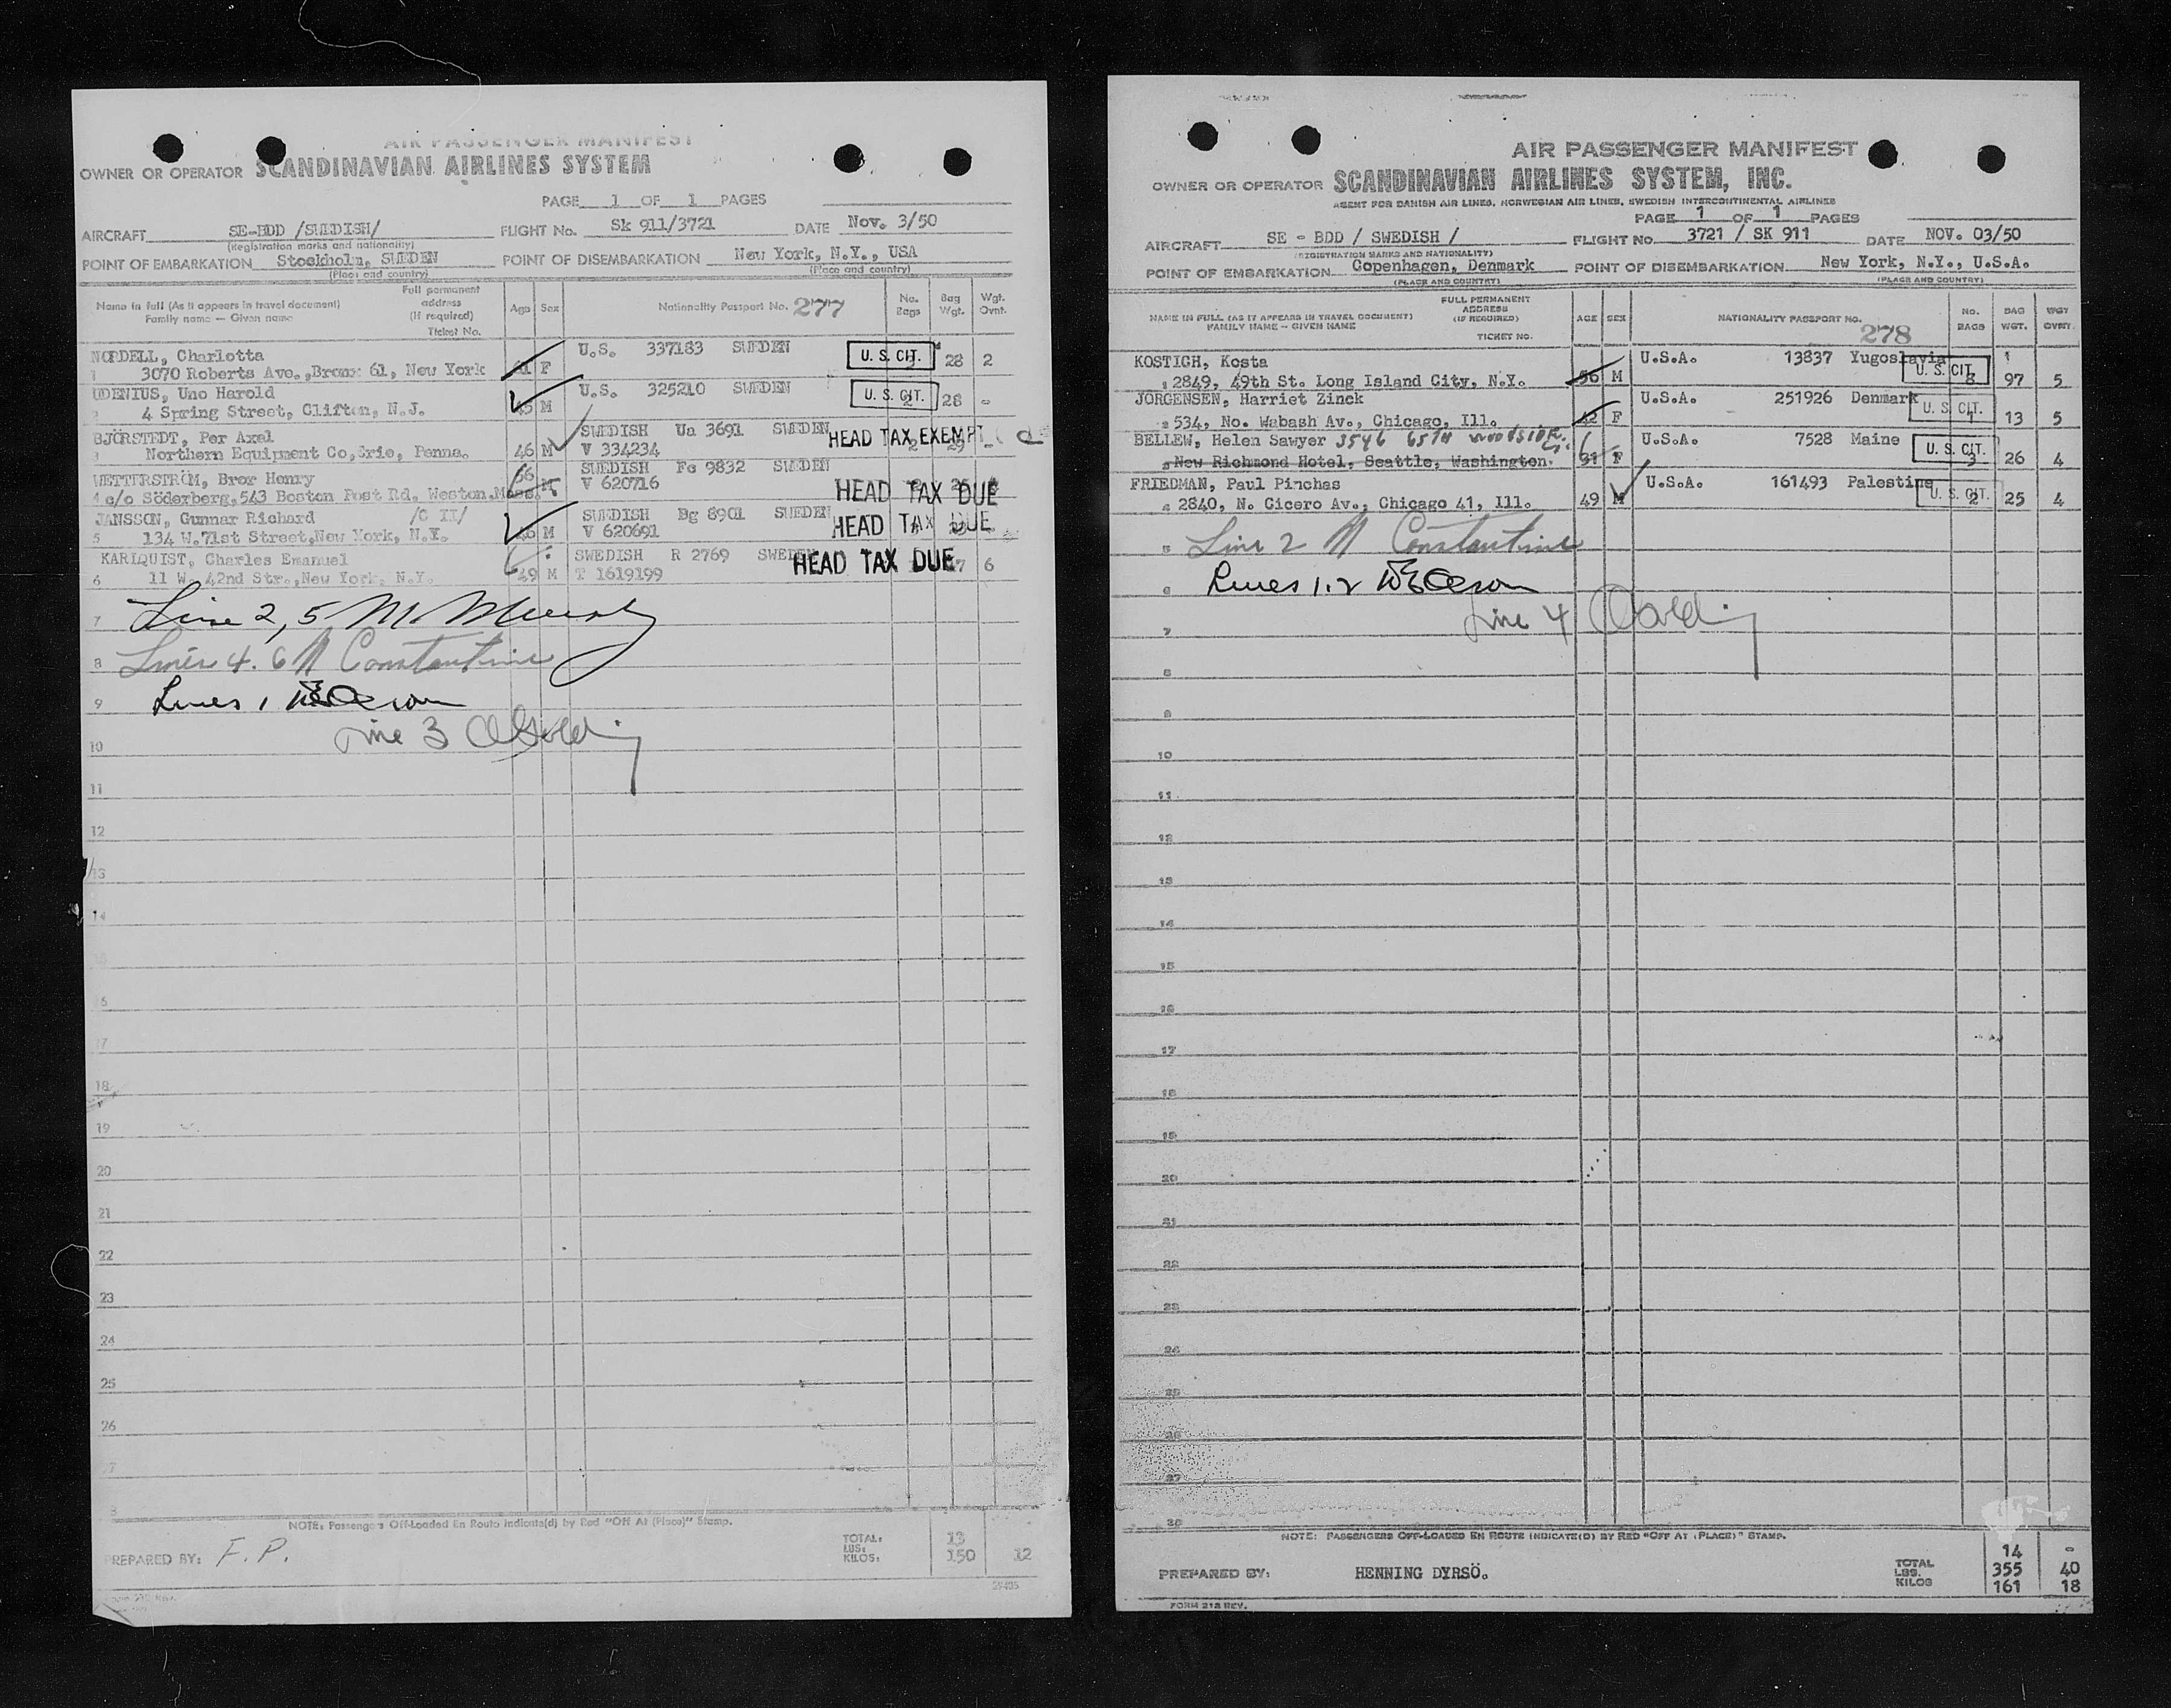 AIR PASSENGER MANIFEST
OWNER OR OPERATOR SCANDINAVIAN AIRLINES SYSTEM
PAGE 1 OF 1 PAGES
AIRCRAFT SE-BDD /SWEDISH/ FLIGHT No. Sk 911/3721 DATE Nov. 3/50
(Registration marks and nationality)
POINT OF EMBARKATION Stockholm, SWEDEN POINT OF DISEMBARKATION New York, N.Y., USA
(Place and country) (Place and country)
Name in full (As it appears in travel document) Family name — Given name Full permanent address (If required) Ticket No. Age Sex Nationality Passport No. 277 No. Bags Bag Wgt. Wgt. Ovnt.
NORDELL, Charlotta U.S. 337183 SWEDEN U. S. CIT. 28 2
1 3070 Roberts Ave.,Bronx 61, New York F
UDENIUS, Uno Harold U.S. 325210 SWEDEN U. S. CIT. 28 -
2 4 Spring Street, Clifton, N.J. 45 M
BJÖRSTEDT, Per Axel SWEDISH Ua 3691 SWEDEN HEAD TAX EXEMPT
3 Northern Equipment Co,Erie, Penna. 46 M V 334234 2 29 -
WETTERSTRÖM, Bror Henry 56 SWEDISH Fe 9832 SWEDEN
4 c/o Söderberg,543 Boston Post Rd, Weston,Mass. M V 620716 HEAD TAX DUE
JANSSON, Gunnar Richard /C II/ SWEDISH Bg 8901 SWEDEN HEAD TAX DUE
5 134 W.71st Street,New York, N.Y. 46 M V 620691
KARLQUIST, Charles Emanuel SWEDISH R 2769 SWEDEN HEAD TAX DUE
6 11 W. 42nd Str.,New York, N.Y. 49 M T 1619199 6
7 Line 2, 5 M
8 Lines 4. 6 N Constantine
9 Lines 1
Line 3
10
11
12
13
14
17
18
19
20
21
22
23
24
25
26
NOTE: Passengers Off-Loaded En Route Indicate(d) by Red "Off At (Place)" Stamp.
PREPARED BY: F.P.
TOTAL: 13
LBS:
KILOS: 150 12
AIR PASSENGER MANIFEST
OWNER OR OPERATOR SCANDINAVIAN AIRLINES SYSTEM, INC.
AGENT FOR DANISH AIR LINES, NORWEGIAN AIR LINES, SWEDISH INTERCONTINENTAL AIRLINES
PAGE 1 OF 1 PAGES
AIRCRAFT SE - BDD / SWEDISH / FLIGHT No. 3721 / SK 911 DATE NOV. 03/50
(REGISTRATION MARKS AND NATIONALITY)
POINT OF EMBARKATION Copenhagen, Denmark POINT OF DISEMBARKATION New York, N.Y., U.S.A.
(PLACE AND COUNTRY) (PLACE AND COUNTRY)
NAME IN FULL (AS IT APPEARS IN TRAVEL DOCUMENT) FAMILY NAME — GIVEN NAME FULL PERMANENT ADDRESS (IF REQUIRED) TICKET NO. AGE SEX NATIONALITY PASSPORT NO. 278 NO. BAGS BAG WGT. WGT OVNT.
KOSTICH, Kosta U.S.A. 13837 Yugoslavia U. S. CIT.
1 2849, 49th St. Long Island City, N.Y. 56 M 8 97 5
JÖRGENSEN, Harriet Zinck U.S.A. 251926 Denmark U. S. CIT.
2 534, No. Wabash Av., Chicago, Ill. 42 F 1 13 5
BELLEW, Helen Sawyer 3546 65TH WOODSIDE U.S.A. 7528 Maine U. S. CIT.
3 New Richmond Hotel, Seattle, Washington. 31 F 3 26 4
FRIEDMAN, Paul Pinchas U.S.A. 161493 Palestine U. S. CIT.
4 2840, N. Cicero Av., Chicago 41, Ill. 49 M 2 25 4
5 Line 2 N Constantine
6 Lines 1.2
7 Line 4
8
9
10
11
12
13
14
15
16
17
18
19
20
21
22
23
24
25
26
27
28
NOTE: PASSENGERS OFF-LOADED EN ROUTE INDICATE(D) BY RED "OFF AT (PLACE)" STAMP.
PREPARED BY: HENNING DYRSÖ.
14 -
TOTAL LBS. 355 40
KILOS 161 18
FORM 218 REV.